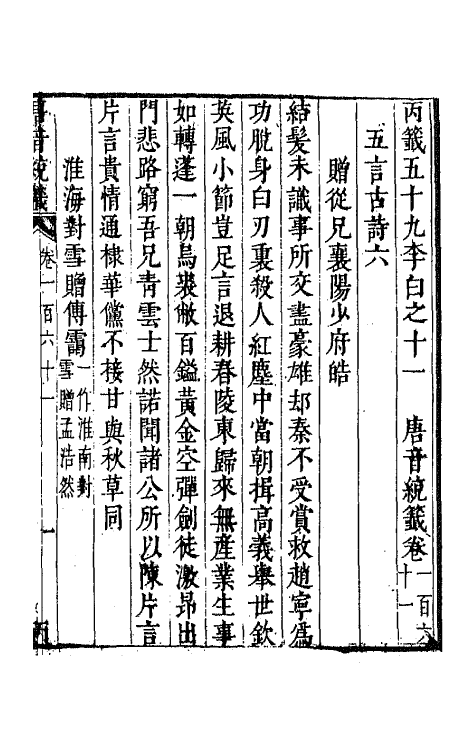 丙籤五十九李白之十一　唐音統籤卷一百六十一
五言古詩六
贈從兄襄陽少府皓
結髮未識事所交盡豪雄却秦不受賞救趙寧爲
功脫身白刃裏殺人紅塵中當朝揖高義舉世欽
英風小節豈足言退耕舂陵東歸來無產業生事
如轉蓬一朝烏裘敝百鎰黃金空彈劍徒激昂出
門悲路窮吾兄青雲士然諾聞諸公所以陳片言
片言貴情通棣華儻不接甘與秋草同
淮海對雪贈傅靄一作淮南對雪贈孟浩然
唐音統籤
卷一百六十一
一